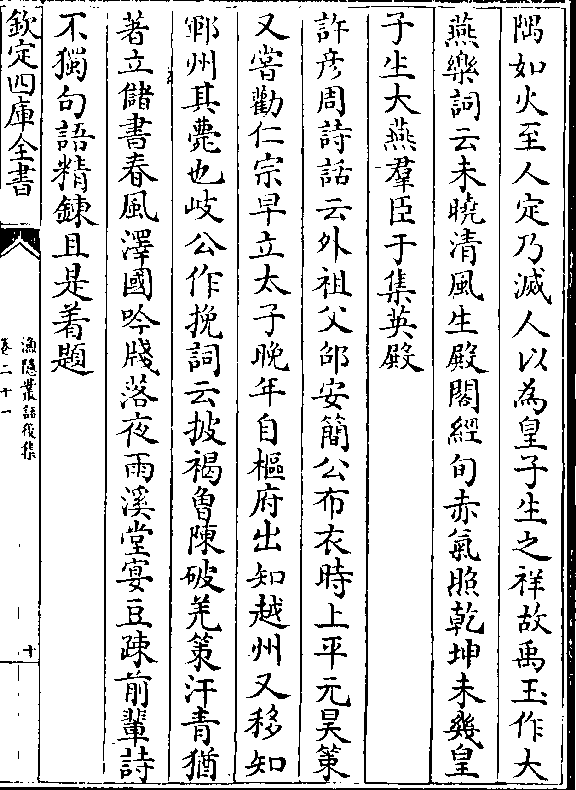 隅如火至人定乃滅人以為皇子生之祥故禹玉作大
燕樂詞云未曉清風生殿閣經旬赤氣照乾坤未幾皇
子生大燕羣臣于集英殿
許彦周詩話云外祖父邰安簡公布衣時上平元昊策
又嘗勸仁宗早立太子晚年自樞府出知越州又移知
鄆州其薨也岐公作挽詞云披褐曽陳破羌策汗青猶
著立儲書春風澤國吟牋落夜雨溪堂宴豆疎前輩詩
不獨句語精鍊且是着題
欽定四庫全書
漁隱叢話後集
卷二十一
十